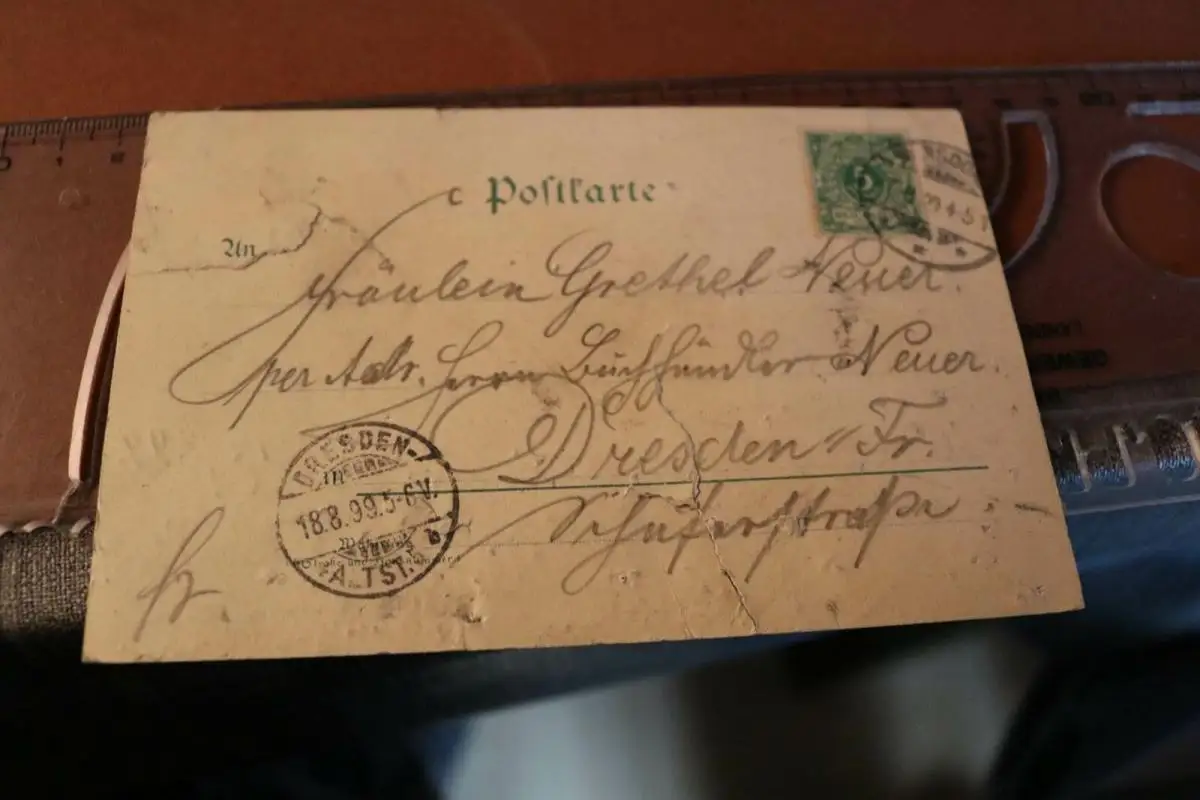 Postkarte
An
Fräulein Grethel Neuer.
per Adr. Herrn Buchhändler Neuer.
Dresden Fr.
Schäferstraße
fr.
DRESDEN-
18.8.99.5-6V.
ALTST.
5